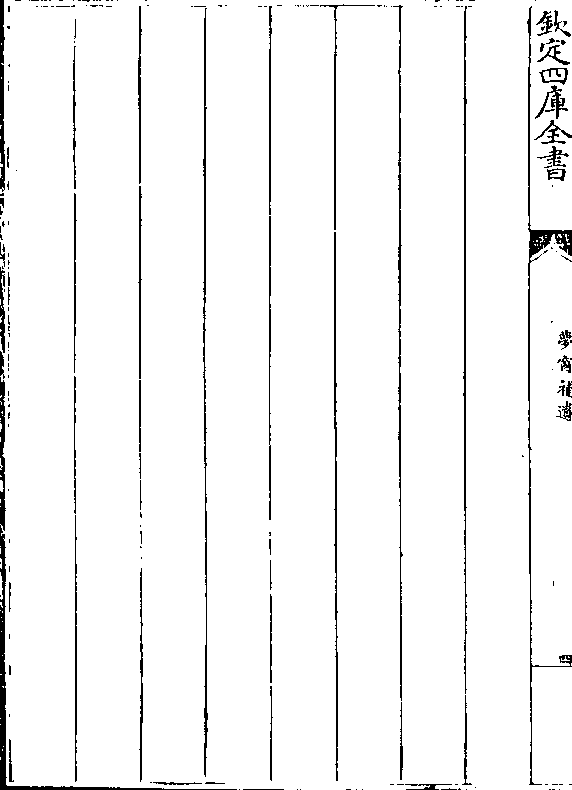 欽定四庫全書
夢窗補遺
四